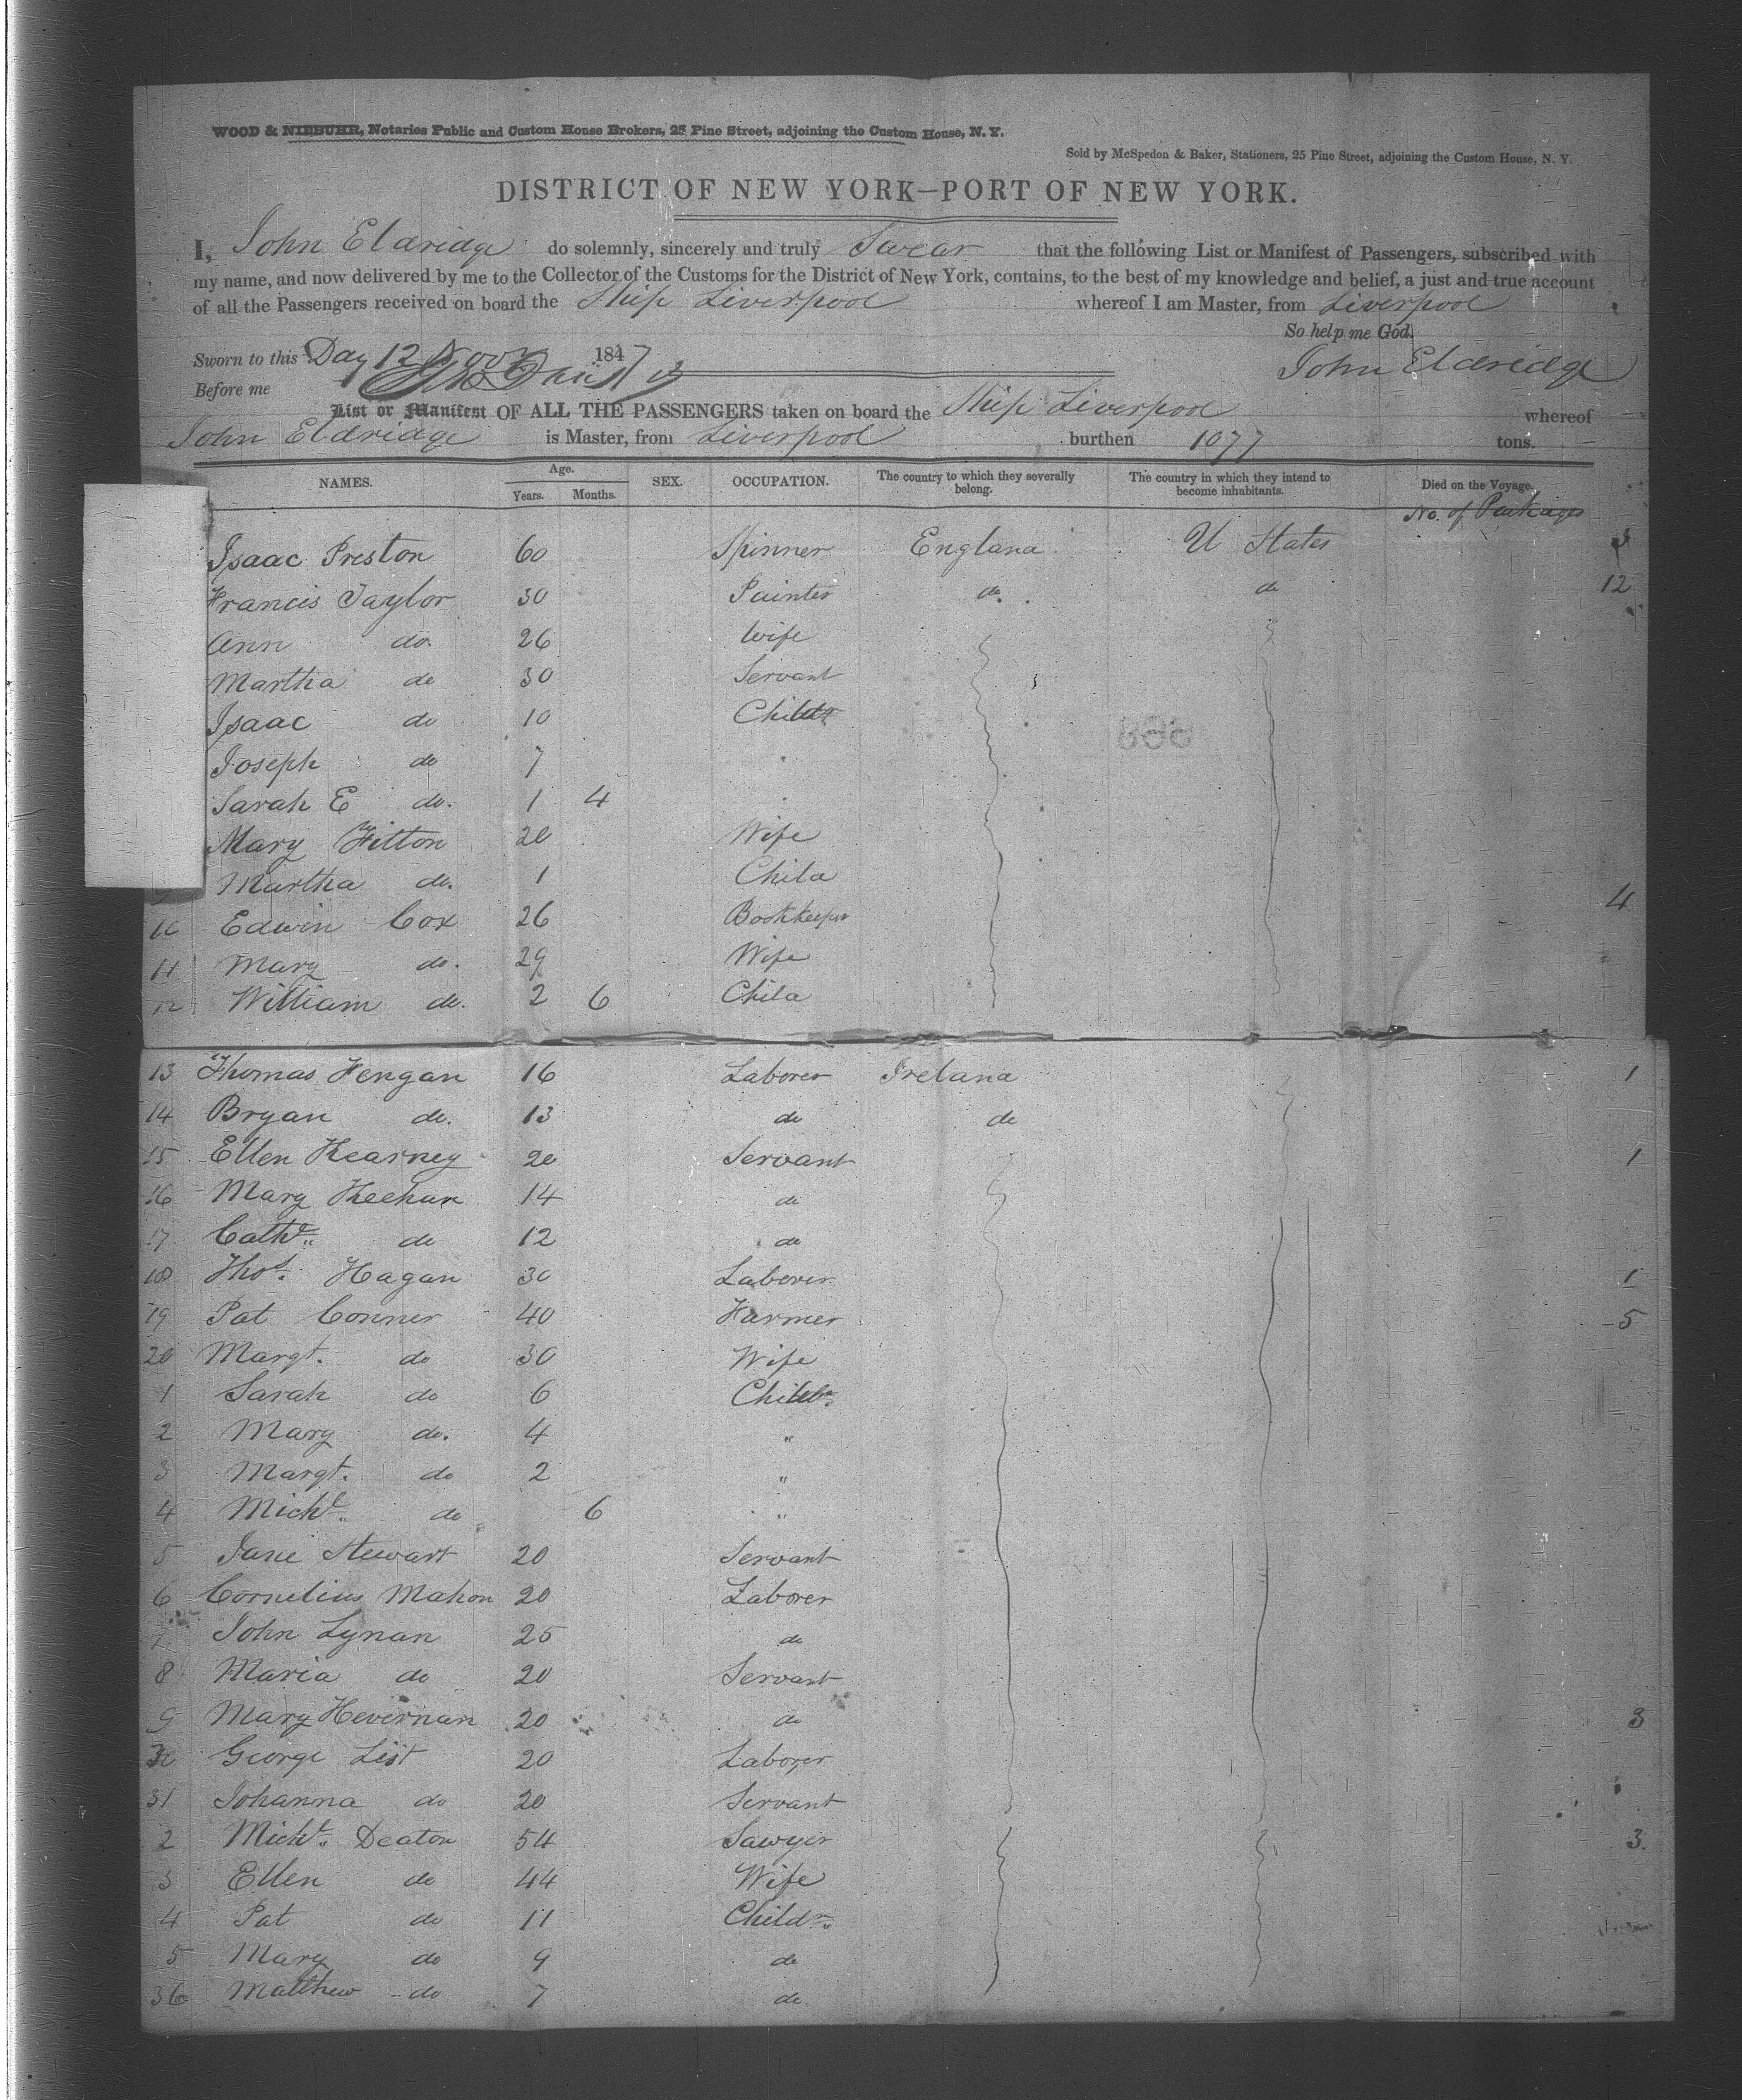 WOOD & NIEBUHR, Notaries Public and Custom House Brokers, 25 Pine Street, adjoining the Custom House, N. Y.
Sold by McSpedon & Baker, Stationers, 25 Pine Street, adjoining the Custom House, N. Y.
DISTRICT OF NEW YORK—PORT OF NEW YORK.
I, John Eldridge do solemnly, sincerely and truly Swear that the following List or Manifest of Passengers, subscribed with
my name, and now delivered by me to the Collector of the Customs for the District of New York, contains, to the best of my knowledge and belief, a just and true account
of all the Passengers received on board the Ship Liverpool whereof I am Master, from Liverpool
So help me God.
Sworn to this Day 12 Novr 1847 John Eldridge
Before me
List or Manifest OF ALL THE PASSENGERS taken on board the Ship Liverpool whereof
John Eldridge is Master, from Liverpool burthen 1077 tons.
NAMES. Age. Years. Months. SEX. OCCUPATION. The country to which they severally belong. The country in which they intend to become inhabitants. Died on the Voyage.
No. of Packages
Isaac Preston 60 Spinner England U States 3
Francis Taylor 30 Painter do. do 12
Ann do. 26 Wife
Martha do 30 Servant
Isaac do 10 Childn
Joseph do 7
Sarah E do. 1 4
Mary Fitton 20 Wife
Martha do. 1 Child
10 Edwin Cox 26 Bookkeeper 4
11 Mary do. 29 Wife
12 William do. 2 6 Child
13 Thomas Fengan 16 Laborer Ireland 1
14 Bryan do. 13 do do
15 Ellen Kearney 20 Servant 1
16 Mary Keehan 14 do
17 Cathe do 12 do
18 Thos. Hagan 30 Laborer 1
19 Pat Conner 40 Farmer 5
20 Margt. do 30 Wife
1 Sarah do 6 Childn.
2 Mary do. 4 "
3 Margt. do 2 "
4 Michl. do 6 "
5 Jane Stewart 20 Servant
6 Cornelius Mahon 20 Laborer
7 John Lynan 25 do
8 Maria do 20 Servant
9 Mary Hevernan 20 do 3
30 George List 20 Laborer
31 Johanna do 20 Servant
2 Michl. Deaton 54 Sawyer 3.
3 Ellen do 44 Wife
4 Pat do 11 Childn.
5 Mary do 9 do
36 Matthew do 7 do